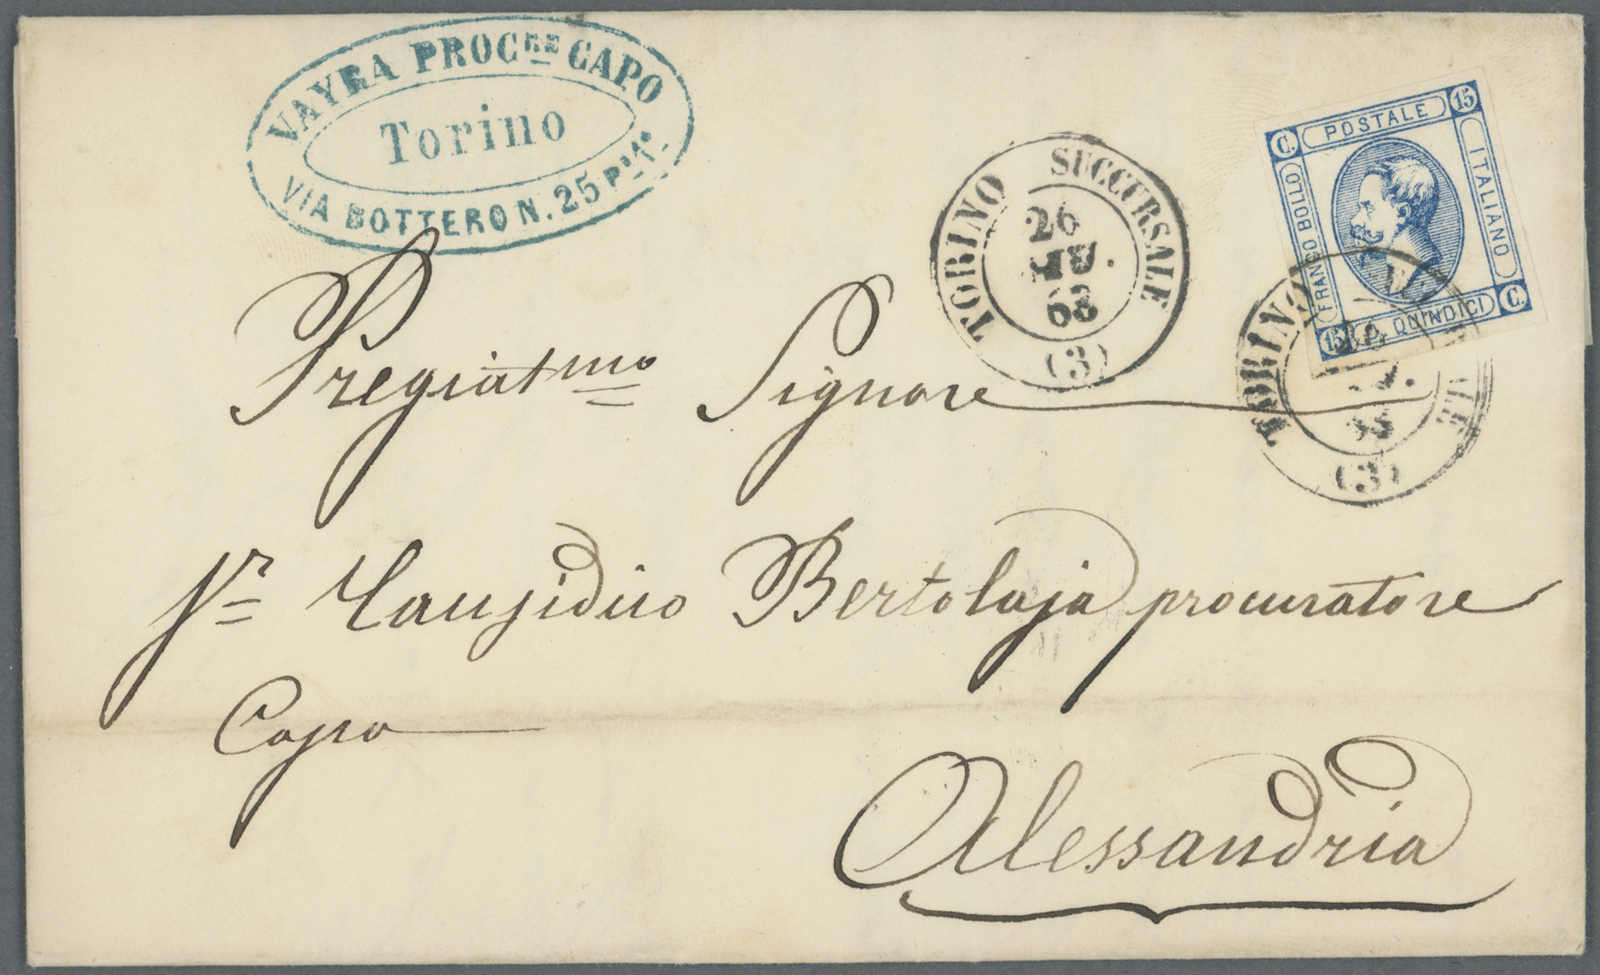 VAYRA PROC<sup>RE</sup> CAPO
Torino
VIA BOTTERO N. 25 P° 1°
TORINO SUCCURSALE
26
GIU.
63
(3)
C. POSTALE 15
FRANCO BOLLO
ITALIANO
15 C. QUINDICI C.
TORINO
(3)
Pregiatmo Signore
Causidico Bertolaja procuratore
Capo
Alessandria